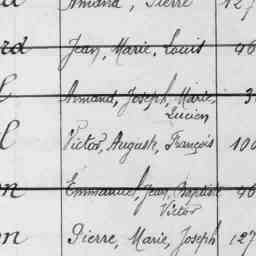 Armand, Pierre 127
rd Jean, Marie, Louis 46
l Armand, Joseph, Marie, 3
Lucien
l Victor, August, François 100
on Emmanuel, Jean, Baptiste 46
Victor
on Pierre, Marie, Joseph 127